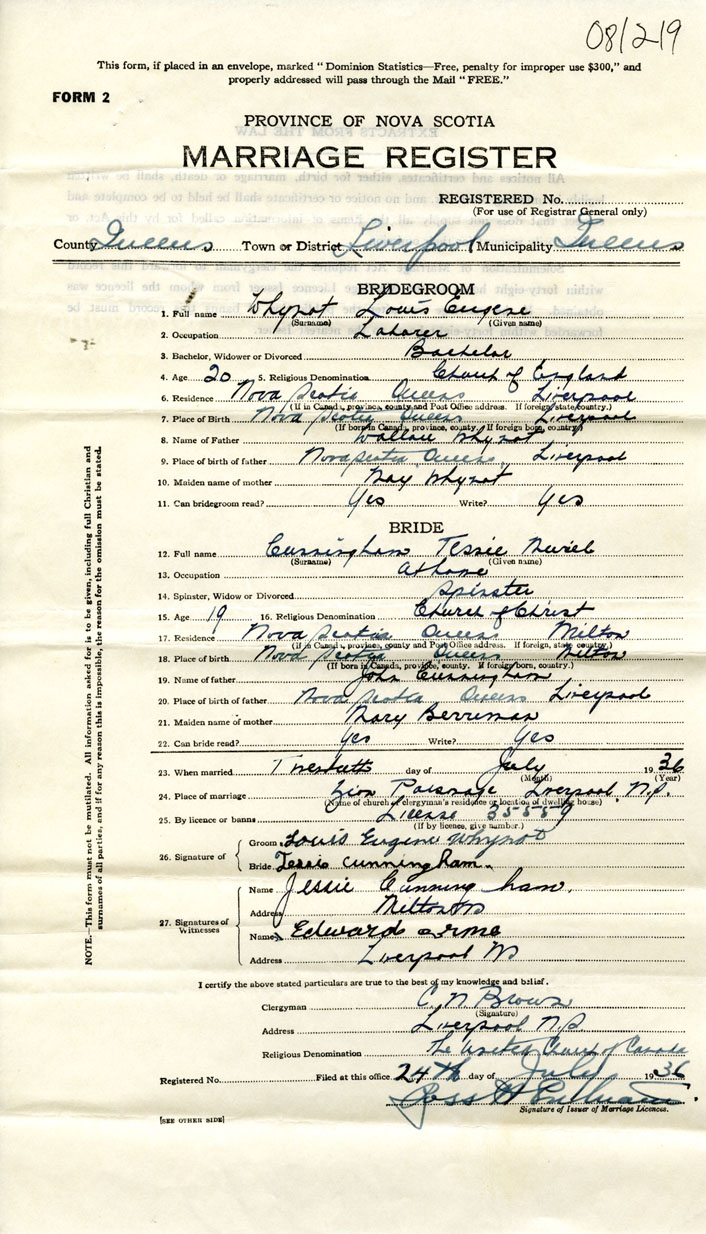 08/219
This form, if placed in an envelope, marked “ Dominion Statistics—Free, penalty for improper use $300,” and
properly addressed will pass through the Mail “ FREE.”
FORM 2
PROVINCE OF NOVA SCOTIA
MARRIAGE REGISTER
REGISTERED No.
(For use of Registrar General only)
County Queens Town or District Liverpool Municipality Queens
BRIDEGROOM
1. Full name Whynot Louis Eugene
(Surname) (Given name)
2. Occupation Laborer
3. Bachelor, Widower or Divorced Bachelor
4. Age 20 5. Religious Denomination Church of England
6. Residence Nova Scotia Queens Liverpool
(If in Canada, province, county and Post Office address. If foreign, state, country.)
7. Place of Birth Nova Scotia Queens Liverpool
(If born in Canada, province, county. If foreign born, country)
8. Name of Father Wallace Whynot
9. Place of birth of father Nova Scotia Queens Liverpool
10. Maiden name of mother May Whynot
11. Can bridegroom read? Yes Write? Yes
BRIDE
12. Full name Cunningham Tessie Muriel
(Surname) (Given name)
13. Occupation At home
14. Spinster, Widow or Divorced Spinster
15. Age 19 16. Religious Denomination Church of Christ
17. Residence Nova Scotia Queens Milton
(If in Canada, province, county and Post Office address. If foreign, state, country.)
18. Place of birth Nova Scotia Queens Milton
(If born in Canada, province, county. If foreign born, country.)
19. Name of father John Cunningham
20. Place of birth of father Nova Scotia Queens Liverpool
21. Maiden name of mother Mary Berriman
22. Can bride read? Yes Write? Yes
23. When married Twentieth day of July 1936
(Month) (Year)
24. Place of marriage Zion Parsonage Liverpool, N.S.
(Name of church of clergyman's residence or location of dwelling house)
25. By licence or banns License 55559
(If by licence, give number.)
26. Signature of
Groom Louis Eugene Whynot
Bride Tessie Cunningham
27. Signatures of Witnesses
Name Jessie Cunningham
Address Milton NS
Name Edward
Address Liverpool NS
I certify the above stated particulars are true to the best of my knowledge and belief.
Clergyman C. N. Brown
(Signature)
Address Liverpool N.S
Religious Denomination The United Church of Canada
Registered No. Filed at this office 24th day of July 1936
Signature of Issuer of Marriage Licences.
[SEE OTHER SIDE]
NOTE.—This form must not be mutilated. All information asked for is to be given, including full Christian and
surnames of all parties, and if for any reason this is impossible, the reason for the omission must be stated.